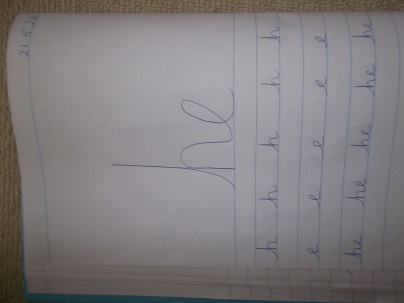 he
h h h h h
e e e e e
he he he he he